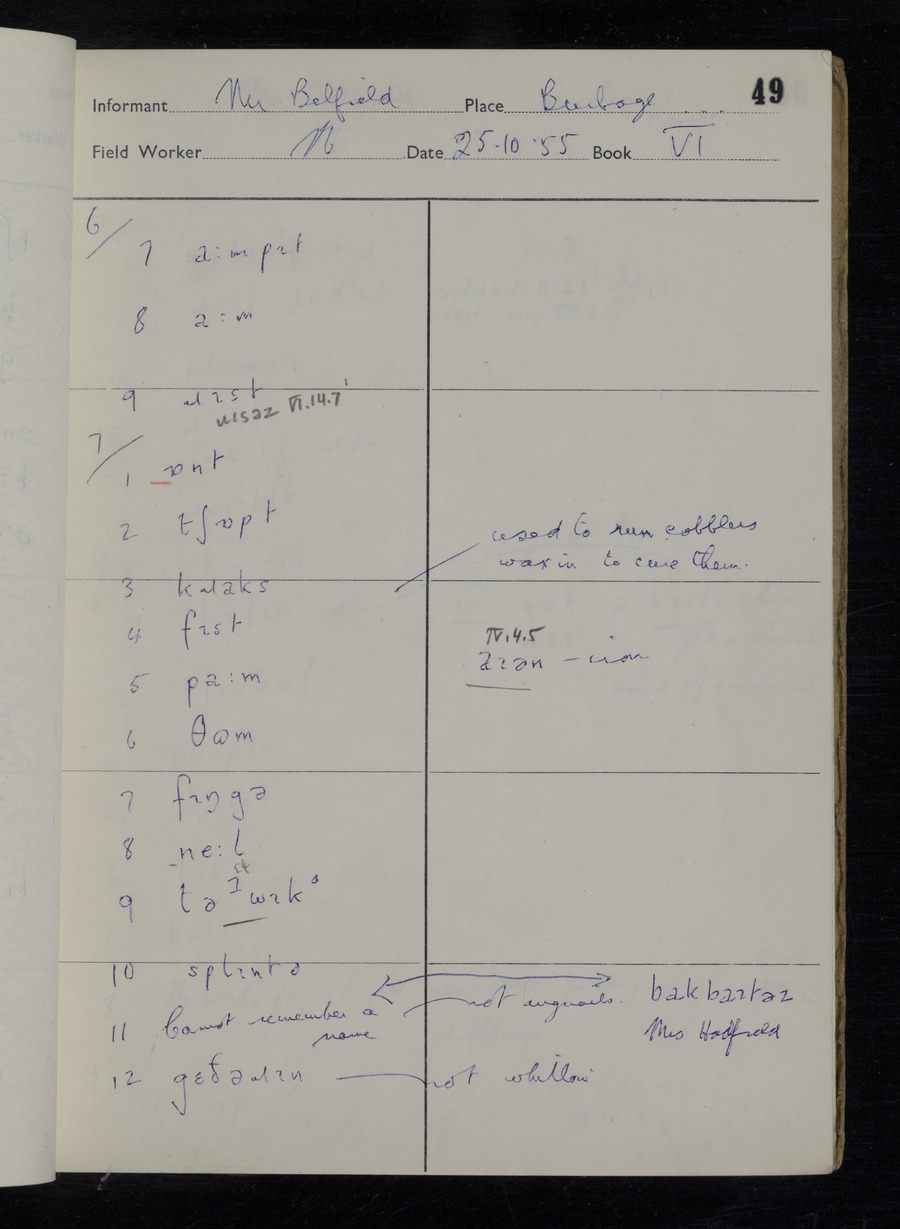 49
Informant Mr Belfield Place Burbage
Field Worker N Date 25·10·55 Book VI
6/
7 a:mpɪt
8 a:m
9 ɹɪst
ɹɪsəz VI.14.7
7/
1 ɒnt
2 tʃɒpt
used to run cobblers
wax in to cure them.
3 kɹaks
4 fɪst
IV.4.5
aɪən – iron
5 pa:m
6 θɷm
7 fɪŋgə
8 ne:l
9 tə wɪk
10 splɪntə
11 Cannot remember a
name
not agnails.
bakbaɪtəz
Mrs Hadfield
12 gɛðəɹɪn — not whitlow